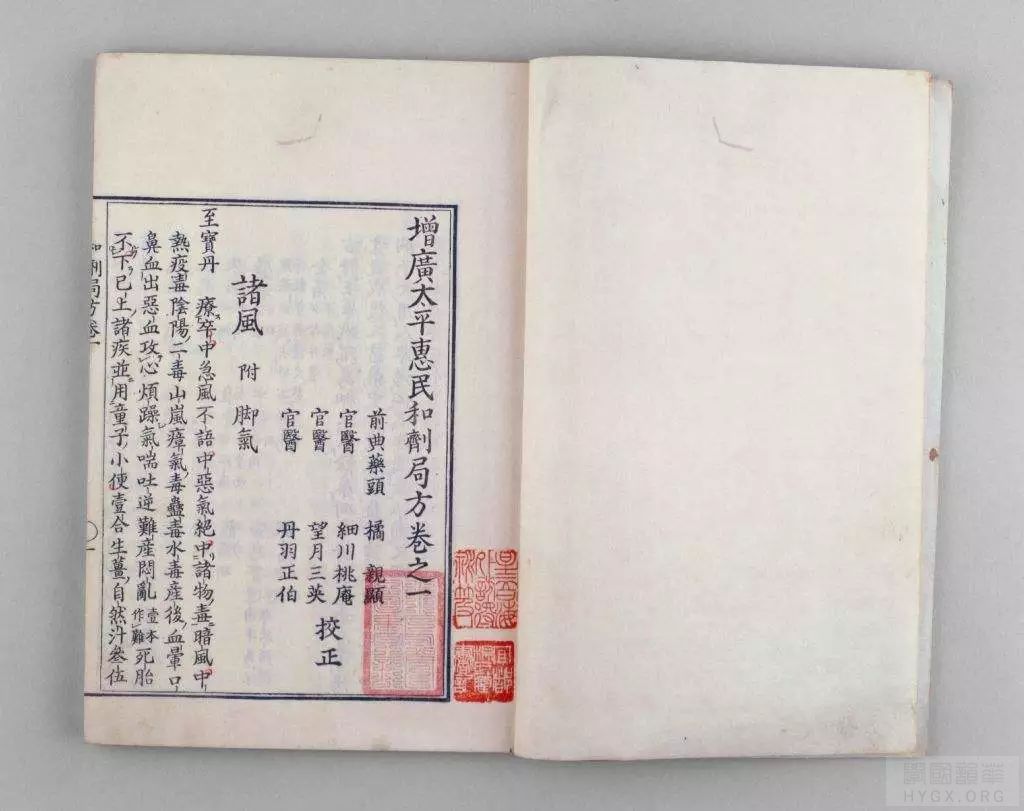 增廣太平惠民和劑局方卷之一
前典藥頭 橘 親顯
官醫 細川桃庵
官醫 望月三英
官醫 丹羽正伯
挍正
諸風 附 脚氣
至寶丹 療卒中急風不語中惡氣絕中諸物毒暗風中
熱疫毒陰陽二毒山嵐瘴氣毒蠱毒水毒產後血暈口
鼻血出惡血攻心煩躁氣喘吐逆難產悶亂壹本作難死胎
不下已上諸疾並用童子小便壹合生薑自然汁叁伍
和劑局方卷一
HYGX.ORG